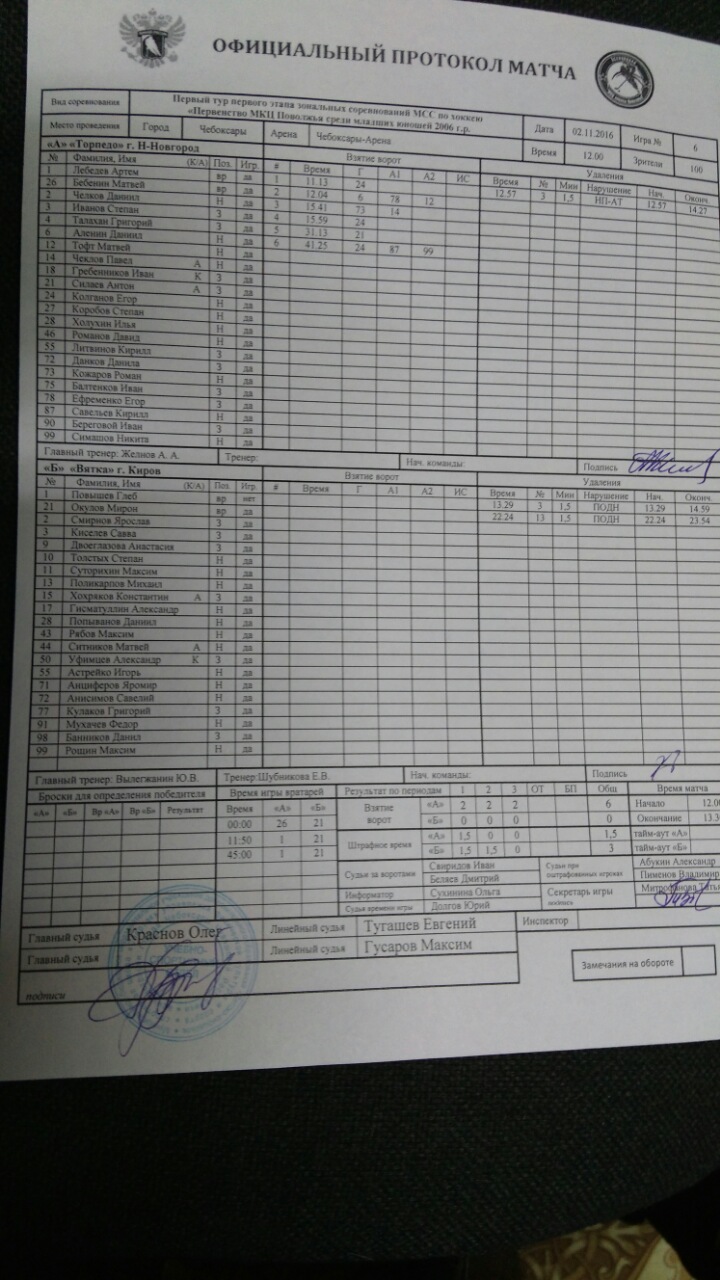 ОФИЦИАЛЬНЫЙ ПРОТОКОЛ МАТЧА
Вид соревнования Первый тур первого этапа зональных соревнований МСС по хоккею
«Первенство МКЦ Поволжья среди младших юношей 2006 г.р. Дата 02.11.2016 Игра № 6
Место проведения Город Чебоксары Арена Чебоксары-Арена Время 12.00 Зрители 100
«А» «Торпедо» г. Н-Новгород Взятие ворот Удаления
№ Фамилия, Имя (К/А) Поз. Игр. # Время Г А1 А2 ИС Время № Мин Нарушение Нач. Оконч.
1 Лебедев Артем вр да 1 11.13 24 12.57 3 1,5 НП-АТ 12.57 14.27
26 Бебенин Матвей вр да 2 12.04 6 78 12
2 Челков Даниил Н да 3 15.41 73 14
3 Иванов Степан З да 4 15.59 24
4 Талахан Григорий З да 5 31.13 21
6 Аленин Даниил Н да 6 41.25 24 87 99
12 Тофт Матвей Н да
14 Чеклов Павел А Н да
18 Гребенников Иван К З да
21 Силаев Антон А З да
24 Колганов Егор Н да
27 Коробов Степан Н да
28 Холухин Илья Н да
46 Романов Давид Н да
55 Литвинов Кирилл З да
72 Данков Данила З да
73 Кожаров Роман Н да
75 Балтенков Иван З да
78 Ефременко Егор З да
87 Савельев Кирилл Н да
90 Береговой Иван З да
99 Симашов Никита Н да
Главный тренер: Желнов А. А. Тренер: Нач. команды: Подпись
«Б» «Вятка» г. Киров Взятие ворот Удаления
№ Фамилия, Имя (К/А) Поз Игр. # Время Г А1 А2 ИС Время № Мин Нарушение Нач. Оконч.
1 Повышев Глеб вр нет 13.29 3 1,5 ПОДН 13.29 14.59
21 Окулов Мирон вр да 22.24 13 1,5 ПОДН 22.24 23.54
2 Смирнов Ярослав З да
3 Киселев Савва З да
9 Двоеглазова Анастасия З да
10 Толстых Степан Н да
11 Суторихин Максим Н да
13 Поликарпов Михаил Н да
15 Хохряков Константин А З да
17 Гисматуллин Александр Н да
28 Попыванов Даниил Н да
43 Рябов Максим Н да
44 Ситников Матвей А Н да
50 Уфимцев Александр К З да
55 Астрейко Игорь Н да
71 Анциферов Яромир Н да
72 Анисимов Савелий Н да
77 Кулаков Григорий З да
91 Мухачев Федор Н да
98 Банников Данил З да
99 Рощин Максим Н да
Главный тренер: Вылегжанин Ю.В. Тренер:Шубникова Е.В. Нач. команды: Подпись
Броски для определения победителя Время игры вратарей Результат по периодам 1 2 3 ОТ БП Общ Время матча
«А» «Б» Вр «А» Вр «Б» Результат Время «А» «Б» Взятие ворот «А» 2 2 2 6 Начало 12.00
00:00 26 21 «Б» 0 0 0 0 Окончание
11:50 1 21 Штрафное время «А» 1,5 0 0 1,5 тайм-аут «А»
45:00 1 21 «Б» 1,5 1,5 0 3 тайм-аут «Б»
Судьи за воротами Свиридов Иван Судьи при оштрафованных игроках Абукин Александр
Беляев Дмитрий Пименов Владимир
Информатор Сухинина Ольга Секретарь игры Митрофанова
Судья времени игры Долгов Юрий подпись
Главный судья Краснов Олег Линейный судья Тугашев Евгений Инспектор
Главный судья Линейный судья Гусаров Максим
Замечания на обороте
подписи